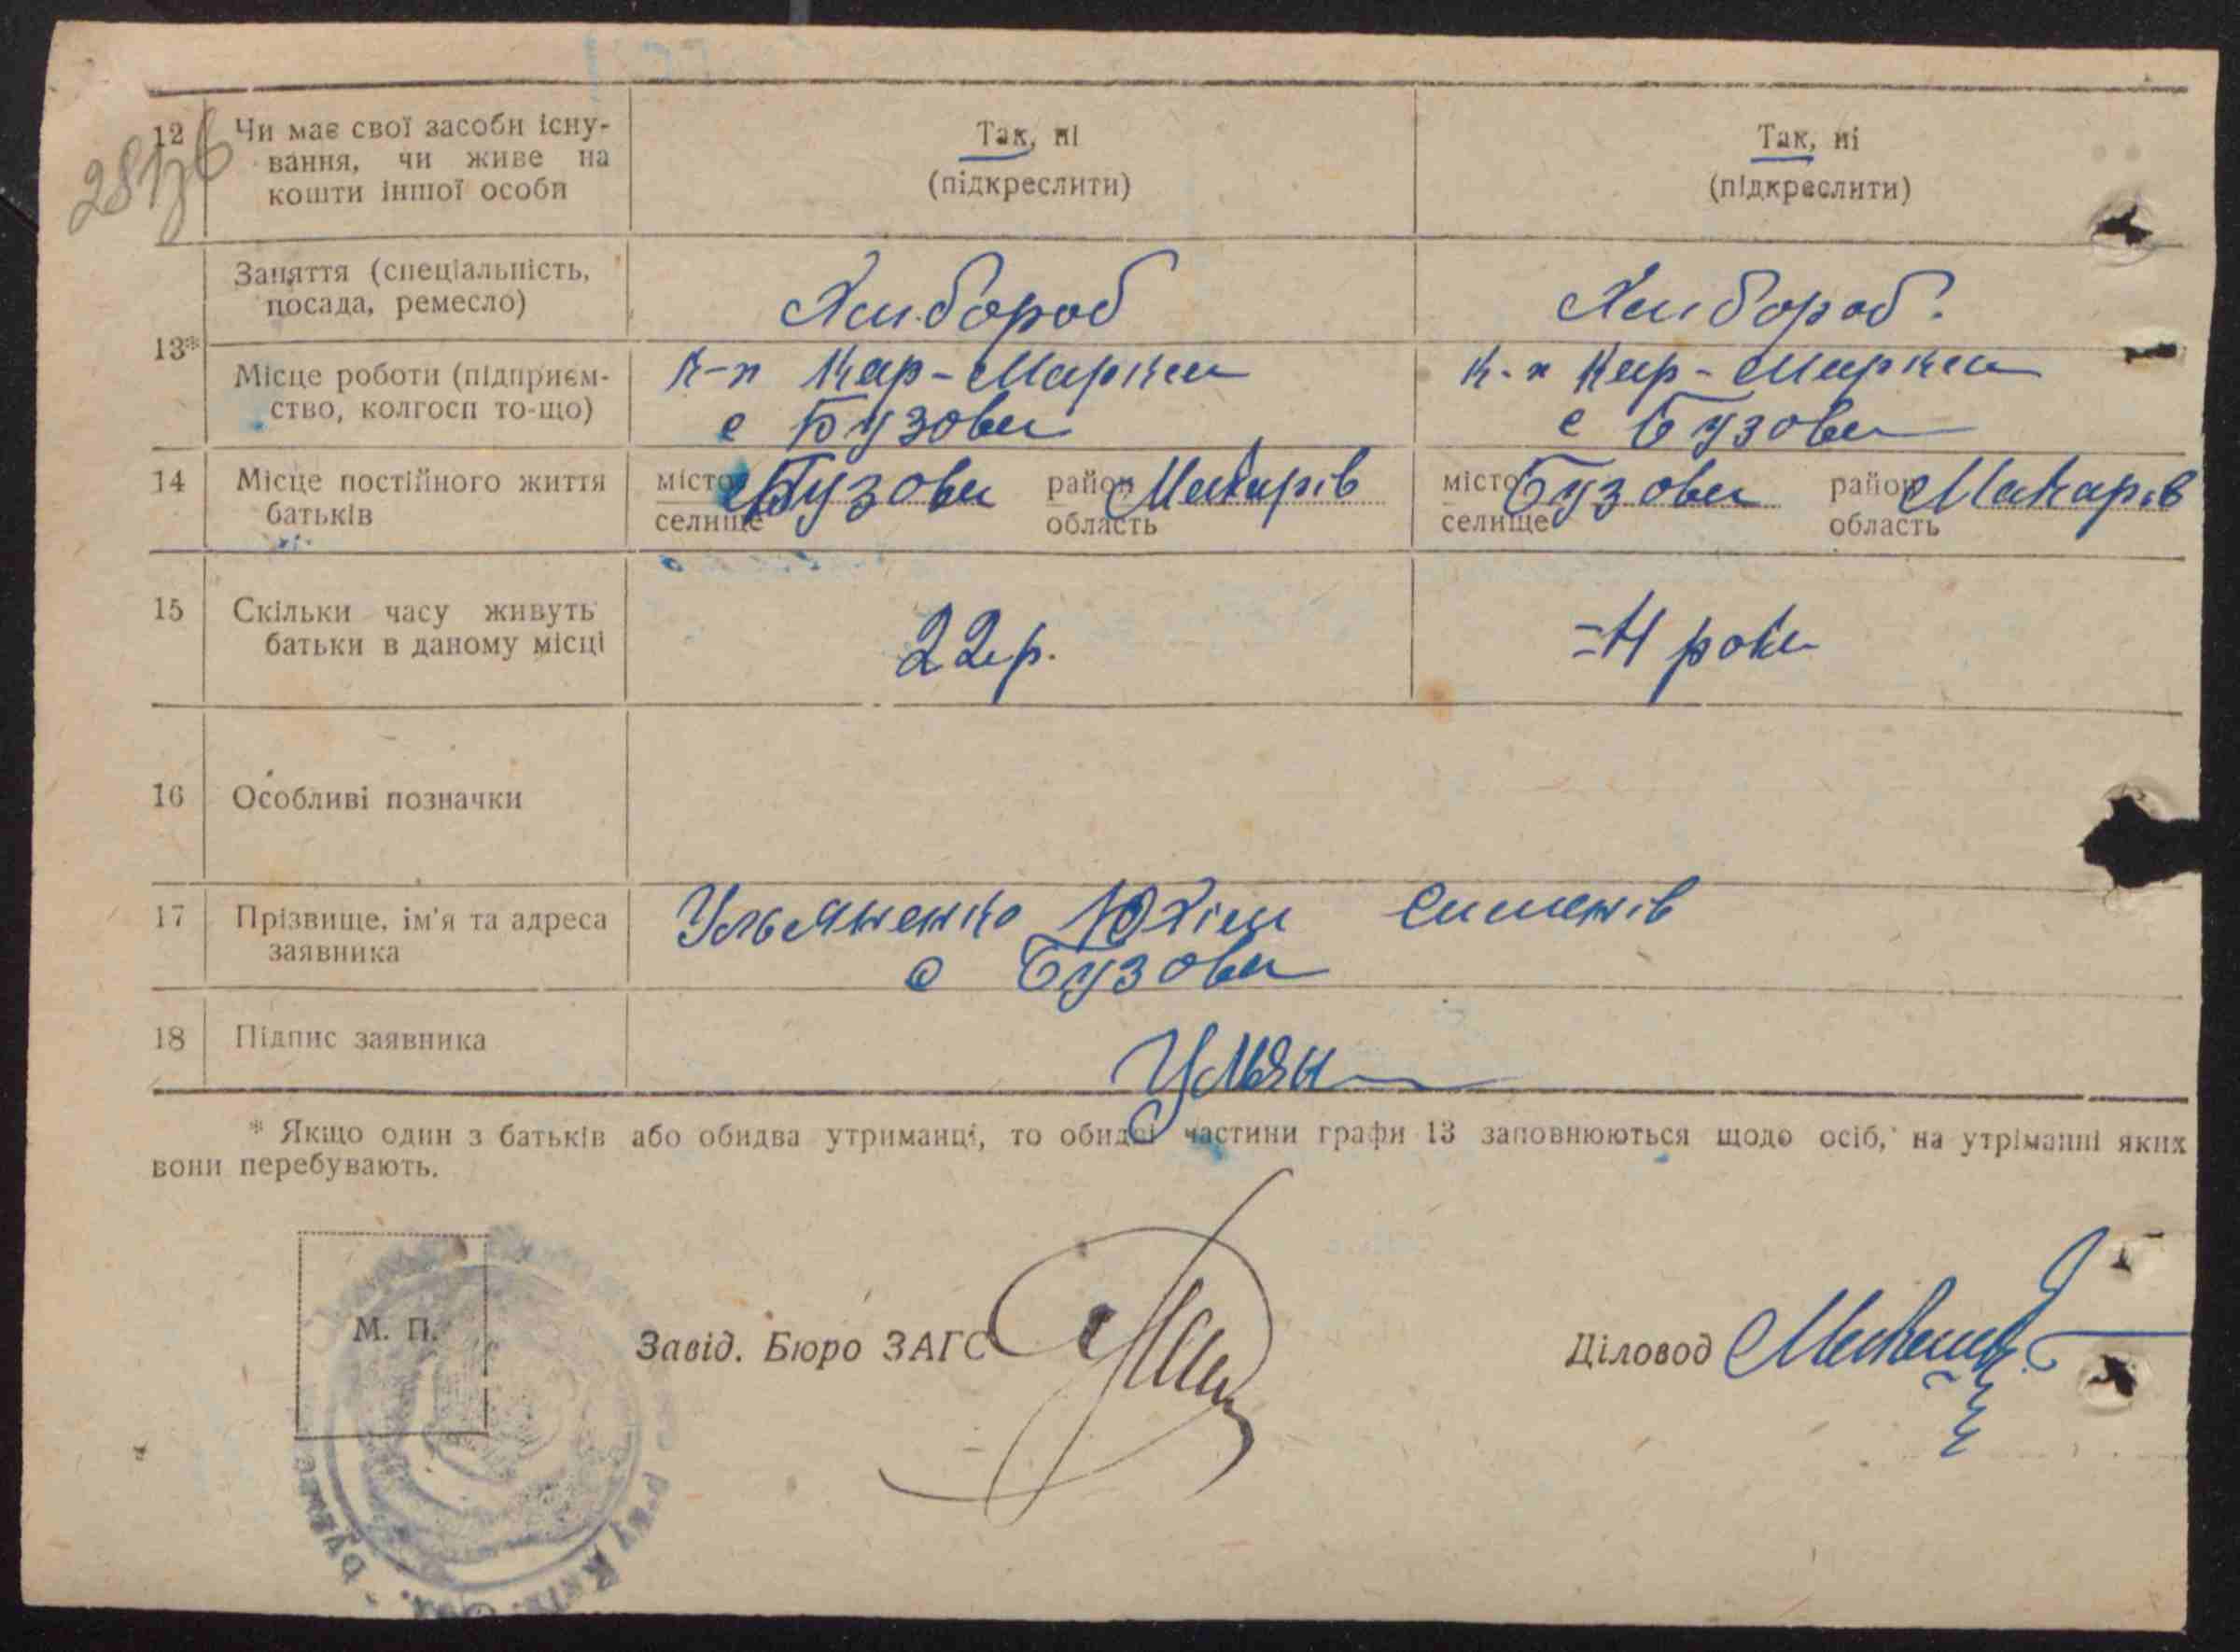 12 Чи має свої засоби існу-
вання, чи живе на
кошти іншої особи
Так, ні
(підкреслити)
Так, ні
(підкреслити)
13* Заняття (спеціальність,
посада, ремесло)
Хлибороб
Хлибороб.
Місце роботи (підприєм-
ство, колгосп то-що)
к-п Кар-Маркса
с Бузова
к-п Кар-Маркса
с Бузова
14 Місце постійного життя
батьків
місто Бузова район Макарів
селище область
місто Бузова район Макарів
селище область
15 Скільки часу живуть
батьки в даному місці
22 р.
роки
16 Особливі позначки
17 Прізвище, ім'я та адреса
заявника
Ульяненко Юхім Сименів
с Бузова
18 Підпис заявника
Ульян
* Якщо один з батьків або обидва утриманці, то обидві частини графи 13 заповнюються щодо осіб, на утріманні яких
вони перебувають.
М. П.
Завід. Бюро ЗАГС
Діловод